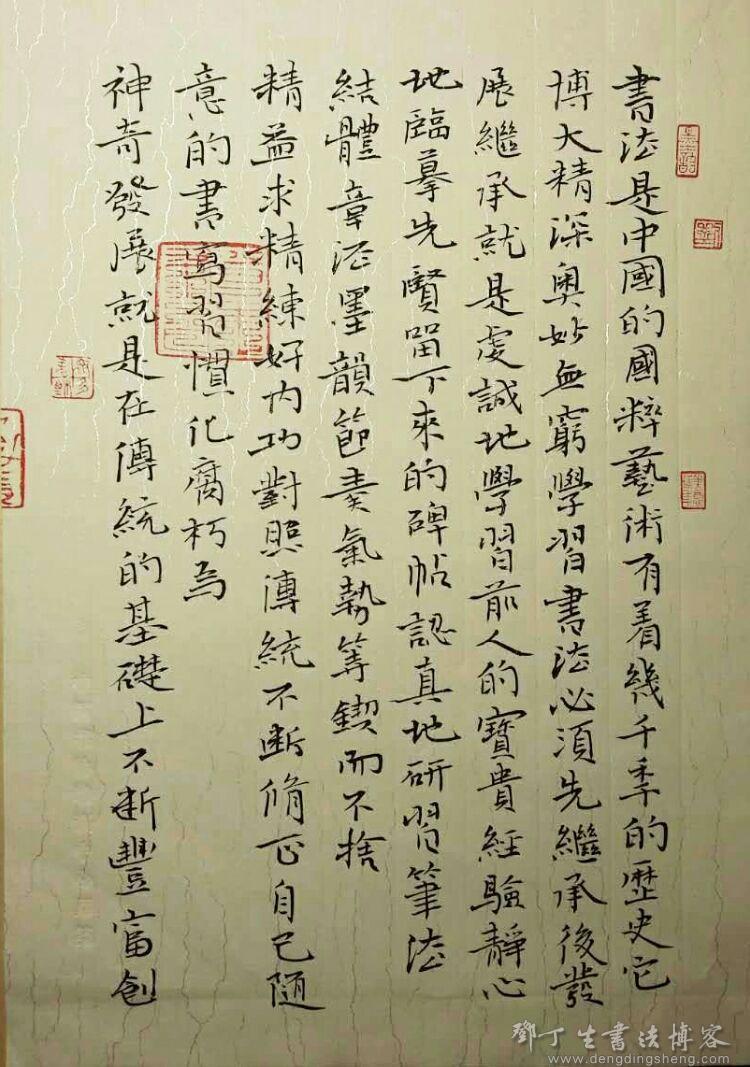 書法是中國的國粹藝術有着幾千年的歷史它
博大精深奧妙無窮學習書法必須先繼承後發
展繼承就是虔誠地學習前人的寶貴經驗靜心
地臨摹先賢留下來的碑帖認真地研習筆法
結體章法墨韻節奏氣勢等鍥而不捨
精益求精練好內功對照傳統不斷脩正自己隨
意的書寫習慣化腐朽為
神奇發展就是在傳統的基礎上不斷豐富創
鄧丁生書法博客
www.dengdingsheng.com